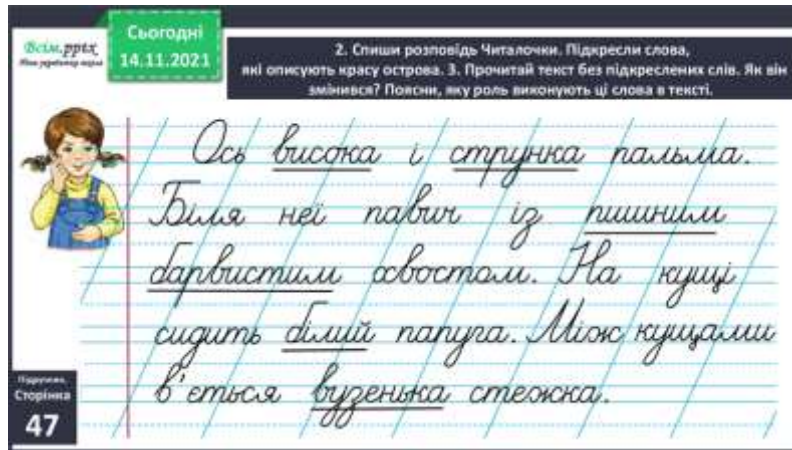 Всім.pptx
Нова українська школа
Сьогодні
14.11.2021
2. Спиши розповідь Читалочки. Підкресли слова,
які описують красу острова. 3. Прочитай текст без підкреслених слів. Як він
змінився? Поясни, яку роль виконують ці слова в тексті.
Ось висока і струнка пальма.
Біля неї павич із пишним
барвистим хвостом. На кущі
сидить білий папуга. Між кущами
в'ється вузенька стежка.
Підручник.
Сторінка
47